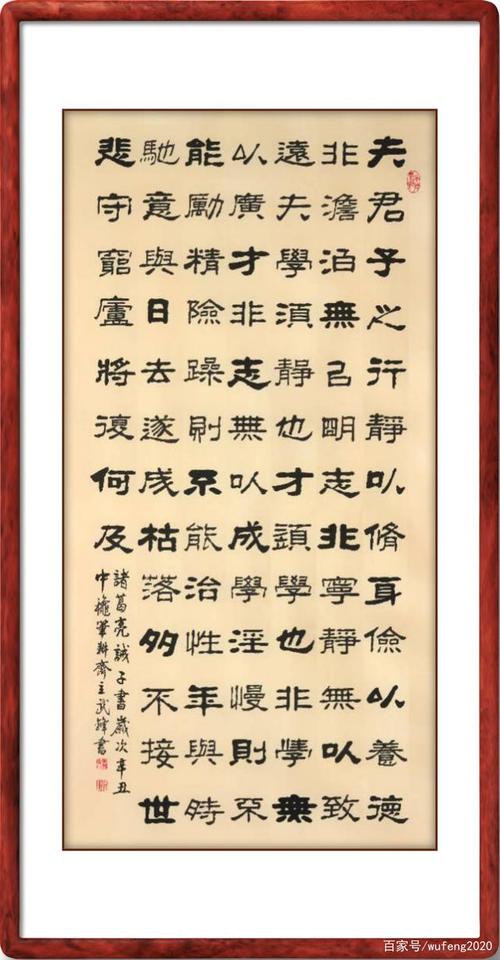 夫君子之行靜以脩身儉以養德
非澹泊無以明志非寧靜無以致
遠夫學須靜也才須學也非學無
以廣才非志無以成學淫慢則不
能勵精險躁則不能治性年與時
馳意與日去遂成枯落多不接世
悲守窮廬將復何及
諸葛亮誡子書歲次辛丑
中筆耕齋主武鋒書
百家号/wufeng2020